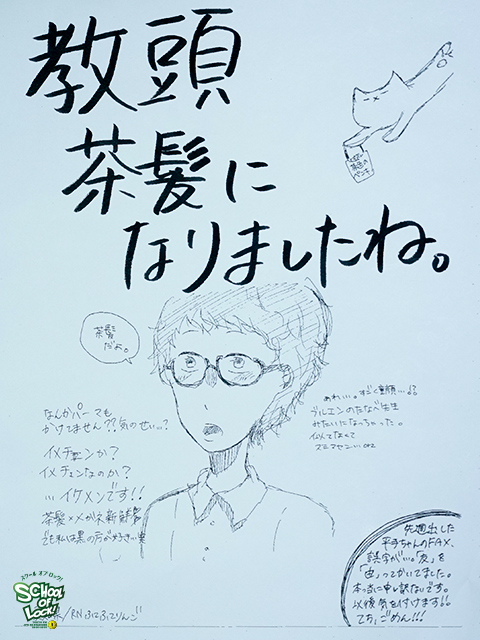 教頭
茶髪に
なりましたね。
茶色の
ペンキ
茶髪
だよ。
なんかパーマも
かけてません??気のせい…?
イメチェンか?
イメチェンなのか?
…イケメンです!!
茶髪×メガネ新鮮
でも私は黒の方が好き
あれぃ…。すごく童顔…!?
ブルエンのたなべ先生
みたいになっちゃった。
似てなくて
スミマセン…orz
先週出した
平手ちゃんのFAX、
誤字が…。「友」を
「由」ってかいてました。
本っ当に申し訳ないです。
以後気を付けます!!
てち、ごめん!!!
スクール オブ ロック!
SCHOOL
OF
LOCK!
/RN ふにふにりんご